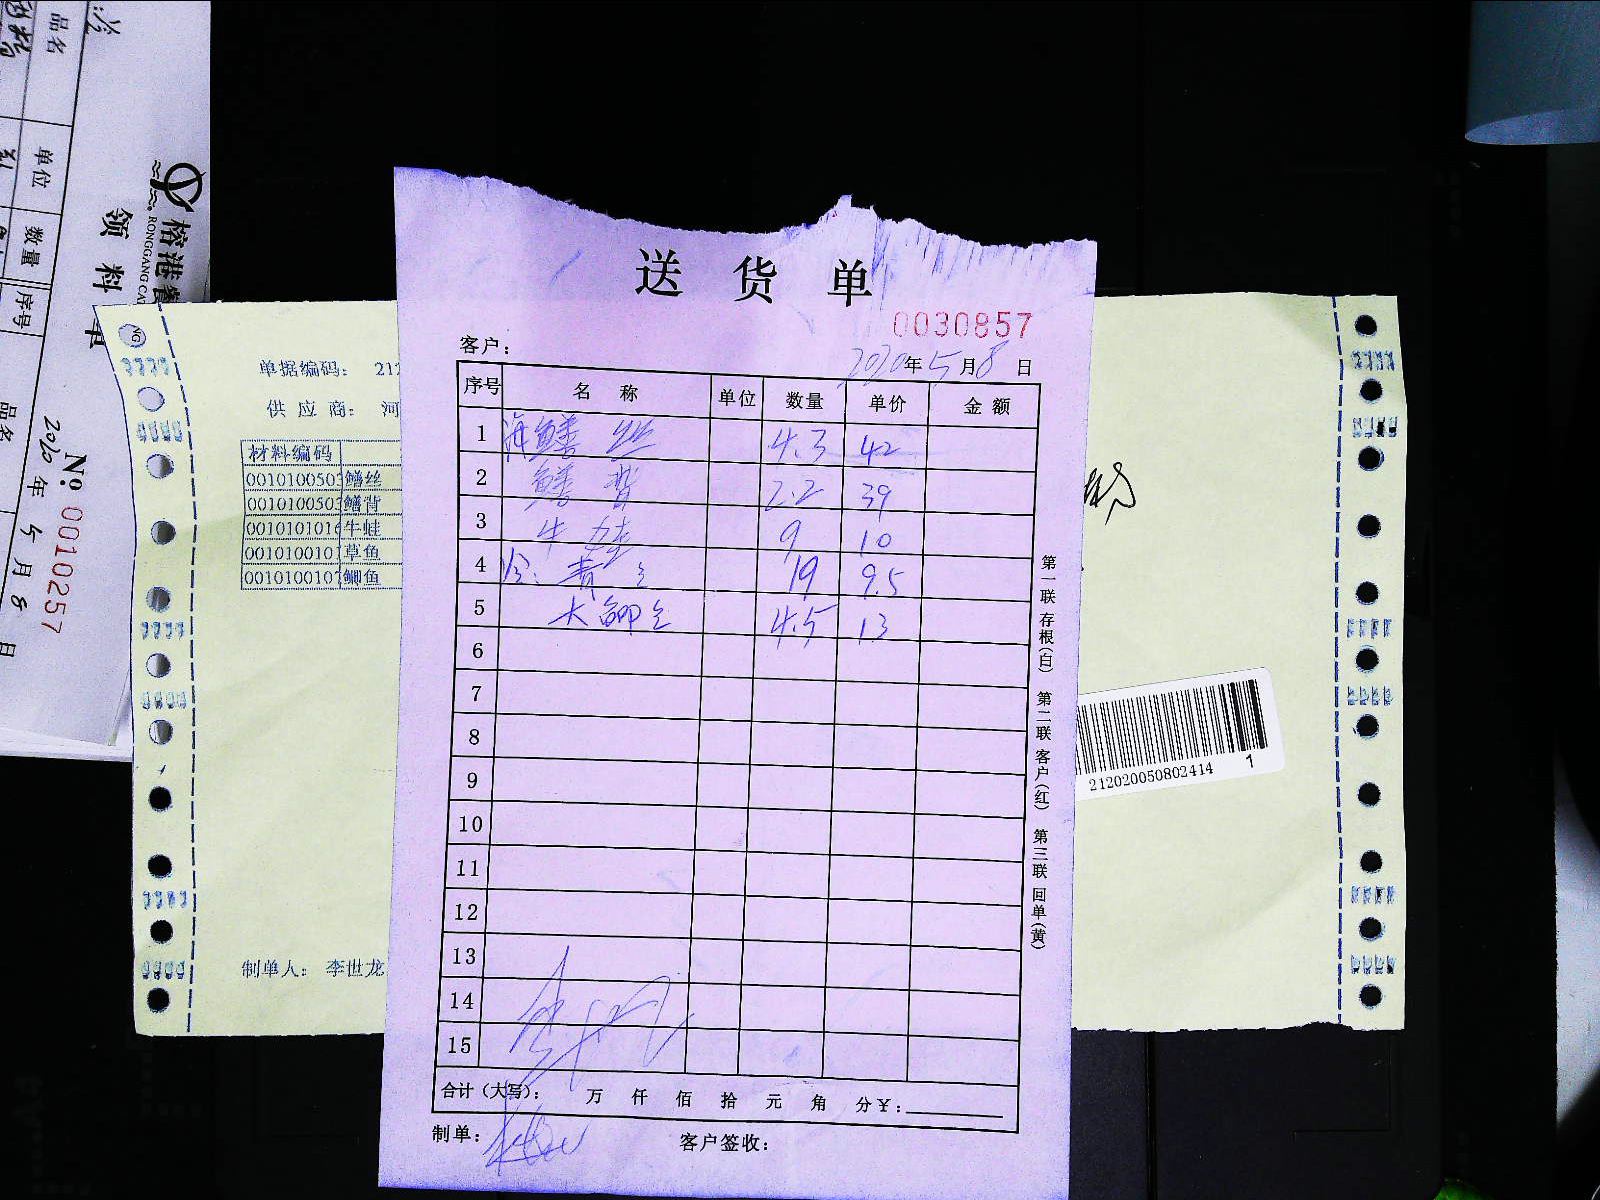 送 货 单
0030857
客户：
2020年5月8日
序号 名 称 单位 数量 单价 金 额
1 海鳝丝 4.3 42
2 鳝背 2.2 39
3 牛蛙 9 10
4 冷：青鱼 19 9.5
5 大鲫鱼 4.5 13
6
7
8
9
10
11
12
13
14
15
合计（大写）： 万 仟 佰 拾 元 角 分￥：
制单： 客户签收：
第一联 存根（白） 第二联 客户（红） 第三联 回单（黄）
单据编码： 212
供 应 商： 河
材料编码
0010100503 鳝丝
0010100503 鳝背
0010101016 牛蛙
0010100101 草鱼
0010100107 鲫鱼
制单人： 李世龙
212020050802414 1
榕港餐
RONGGANG CA
领 料 单
№ 0010257
2020年5月8日
品名 单位 数量 序号 品名